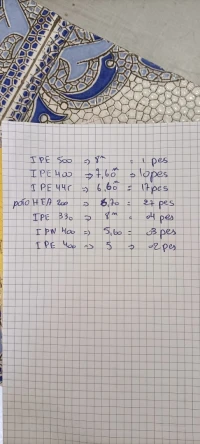 IPE 500 => 8m = 1 pes
IPE 400 => 7,60m => 10 pes
IPE 445 => 6,60m = 17 pes
HEA 200 => 6,70 = 27 pes
IPE 330 => 8m = 04 pes
IPN 400 => 5,60 = 03 pes
IPE 400 => 5 => 02 pes